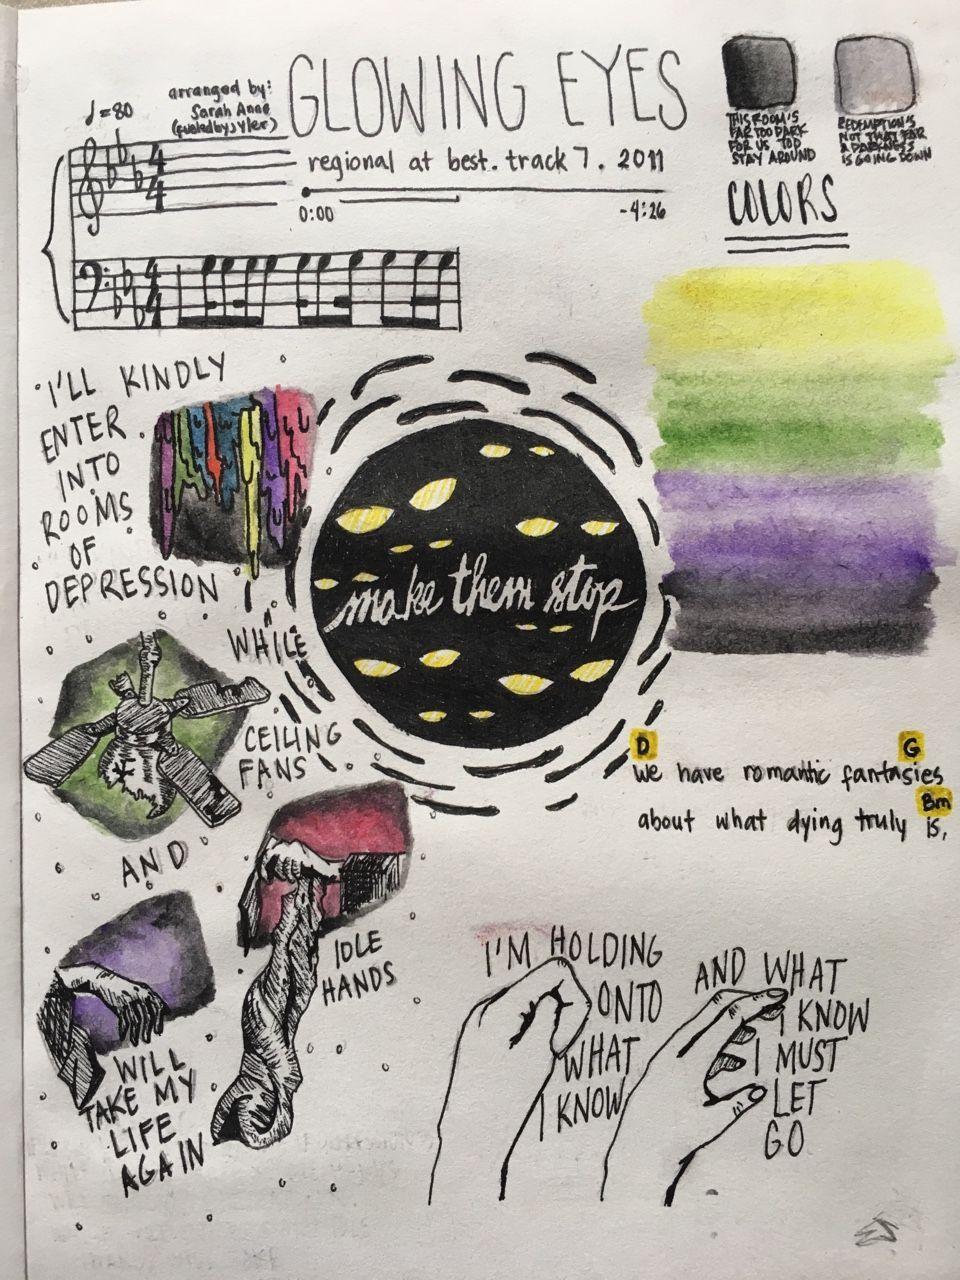 GLOWING EYES
♩=80
arranged by:
Sarah Anne
(fueledbyjyler)
regional at best. track 7. 2011
0:00
-4:26
4
4
4
4
THIS ROOM'S
FAR TOO DARK
FOR US TOO
STAY AROUND
REDEMPTION'S
NOT THAT FAR
& DARKNESS
IS GOING DOWN
COLORS
I'LL KINDLY
ENTER
INTO
ROOMS
OF
DEPRESSION
WHILE
CEILING
FANS
AND
IDLE
HANDS
WILL
TAKE MY
LIFE
AGAIN
make them stop
D G
We have romantic fantasies
Bm
about what dying truly is,
I'M HOLDING
ONTO
WHAT
I KNOW
AND WHAT
I KNOW
I MUST
LET
GO